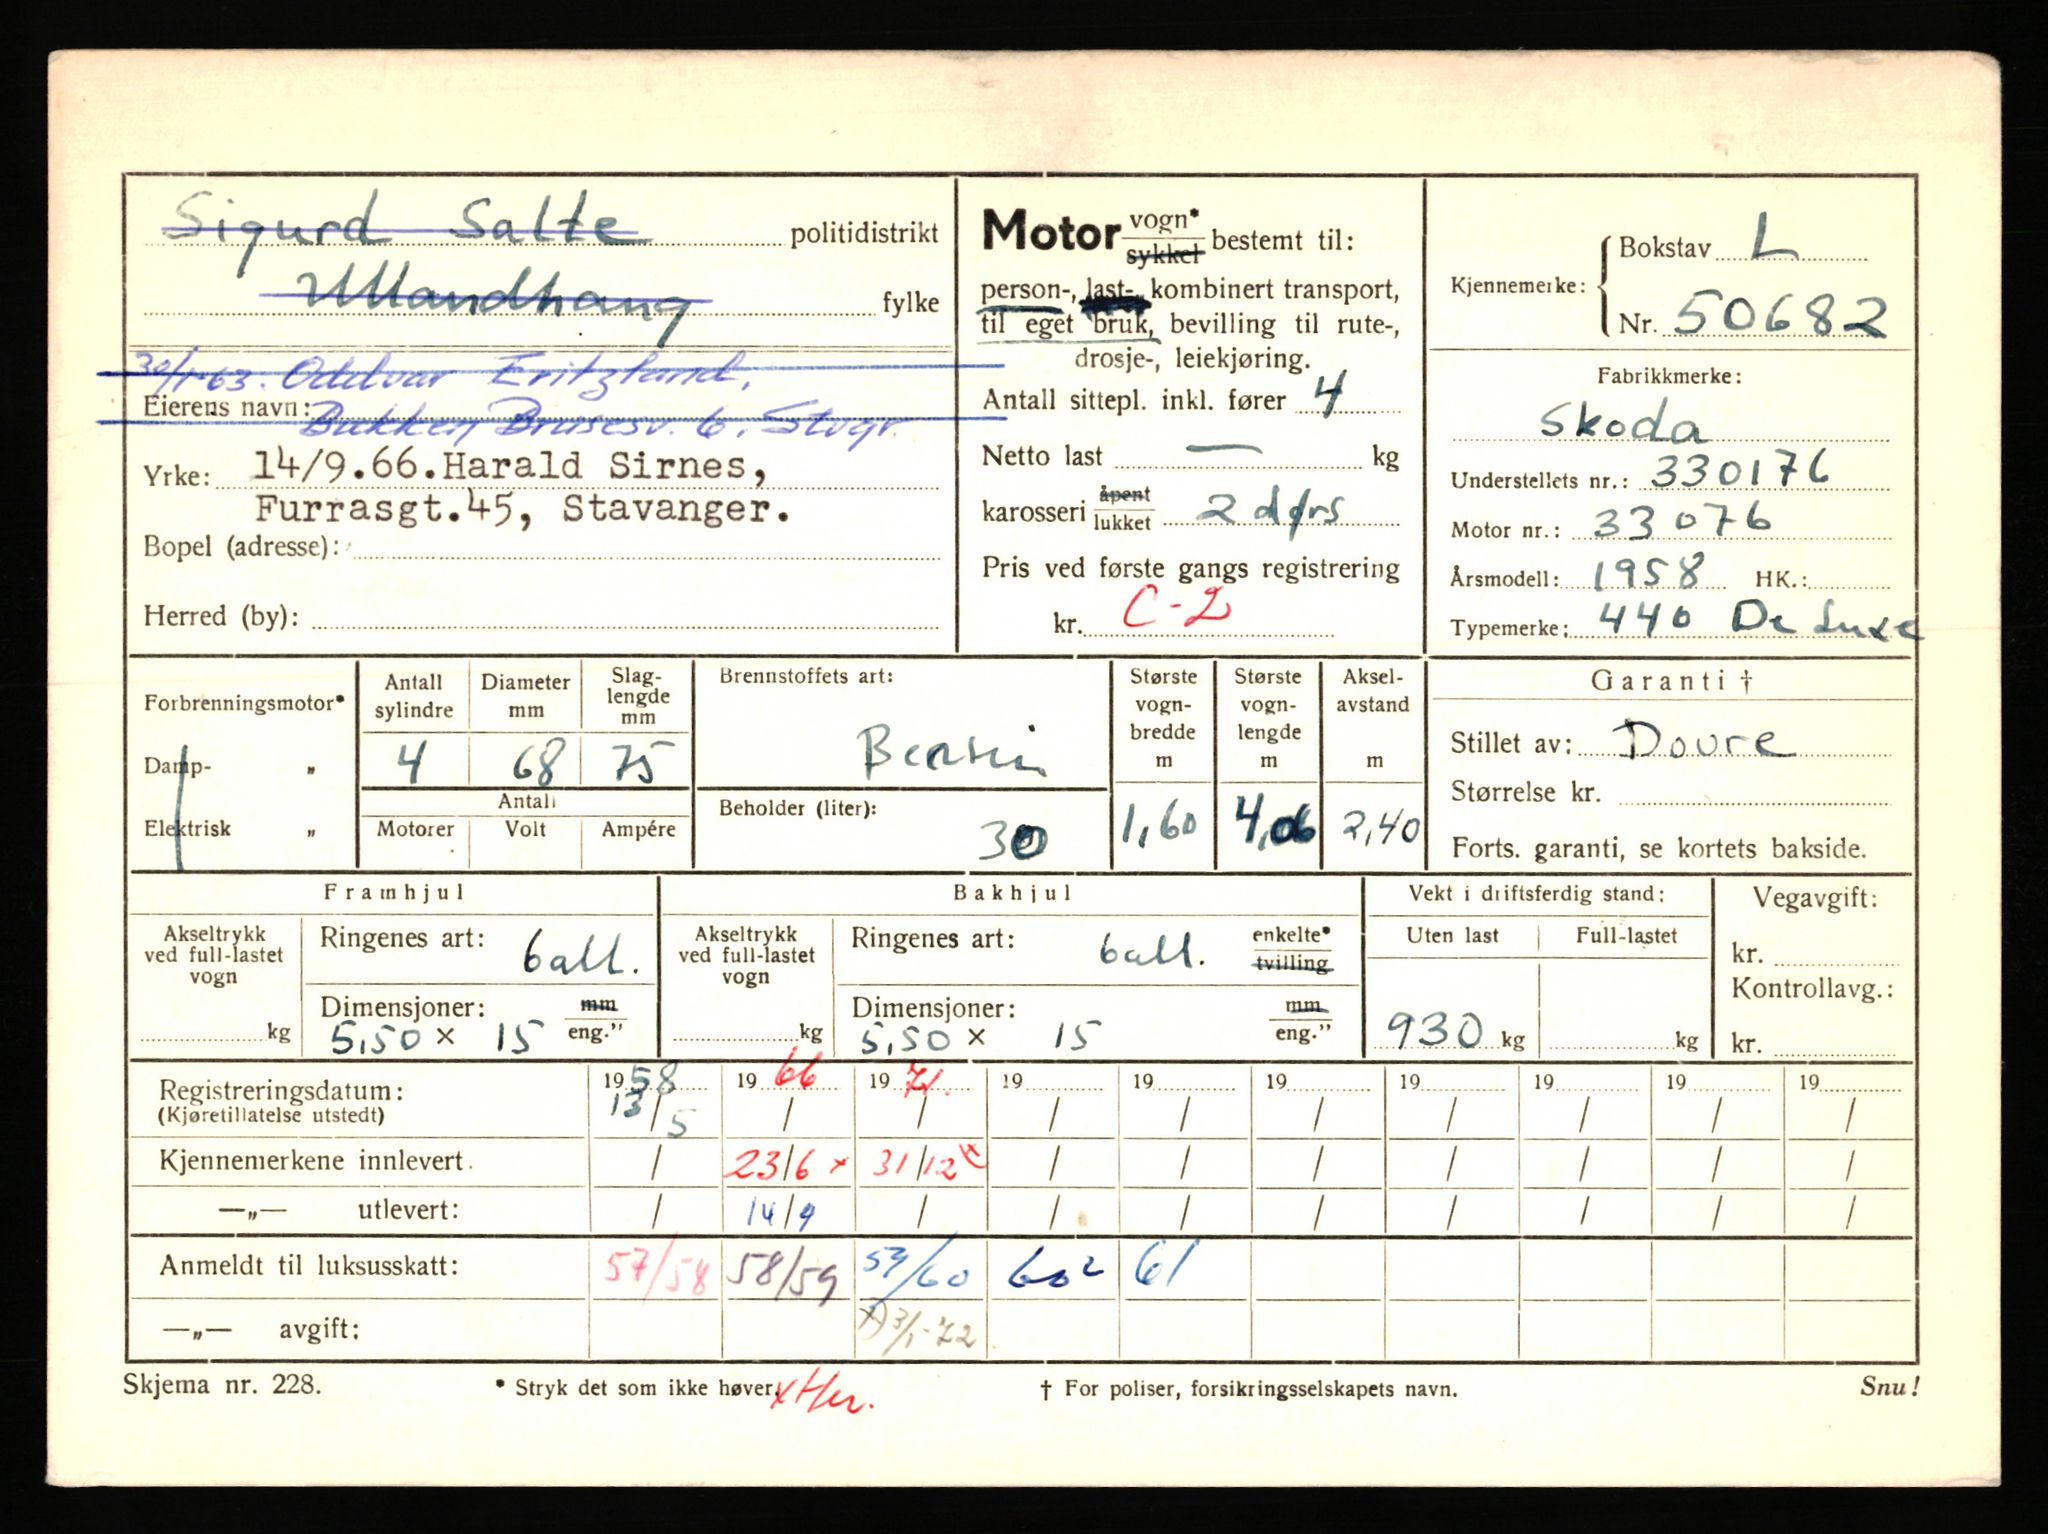 Sigurd Salte politidistrikt
Ullandhaug fylke
30/1-63. Oddvar Eritzland.
Eierens navn: Bukken Brusesv. 6. Stvgr.
Yrke: 14/9.66.Harald Sirnes,
Furrasgt.45, Stavanger.
Bopel (adresse):
Herred (by):
Motor vogn* sykkel bestemt til:
person-, last-, kombinert transport,
til eget bruk, bevilling til rute-,
drosje-, leiekjøring.
Antall sittepl. inkl. fører 4
Netto last — kg
karosseri åpent lukket 2 dørs
Pris ved første gangs registrering
kr. C-2
Kjennemerke: Bokstav L
Nr. 50682
Fabrikkmerke:
Skoda
Understellets nr.: 330176
Motor nr.: 33076
Årsmodell: 1958 HK.:
Typemerke: 440 De Luxe
Forbrenningsmotor*
Damp- „
Elektrisk „
Antall sylindre
4
Diameter mm
68
Slag-lengde mm
75
Antall
Motorer Volt Ampére
Brennstoffets art:
Bensin
Beholder (liter):
30
Største vogn-bredde m
1,60
Største vogn-lengde m
4,06
Aksel-avstand m
2,40
Garanti †
Stillet av: Dovre
Størrelse kr.
Forts. garanti, se kortets bakside.
Framhjul
Akseltrykk ved full-lastet vogn
kg
Ringenes art: ball.
Dimensjoner: mm
5,50 x 15 eng."
Bakhjul
Akseltrykk ved full-lastet vogn
kg
Ringenes art: ball. enkelte* tvilling
Dimensjoner: mm
5,50 x 15 eng."
Vekt i driftsferdig stand:
Uten last Full-lastet
930 kg kg
Vegavgift:
kr.
Kontrollavg.:
kr.
Registreringsdatum: 1958 1966 1971. 19 19 19 19 19 19 19
(Kjøretillatelse utstedt) 13/5 / / / / / / / / /
Kjennemerkene innlevert. / 23/6 x 31/12 x / / / / / / /
—„— utlevert: / 14/9 / / / / / / / /
Anmeldt til luksusskatt: 57/58 58/59 59/60 60² 61
—„— avgift: x) 3/1-72
Skjema nr. 228. * Stryk det som ikke høver. † For poliser, forsikringsselskapets navn. Snu!